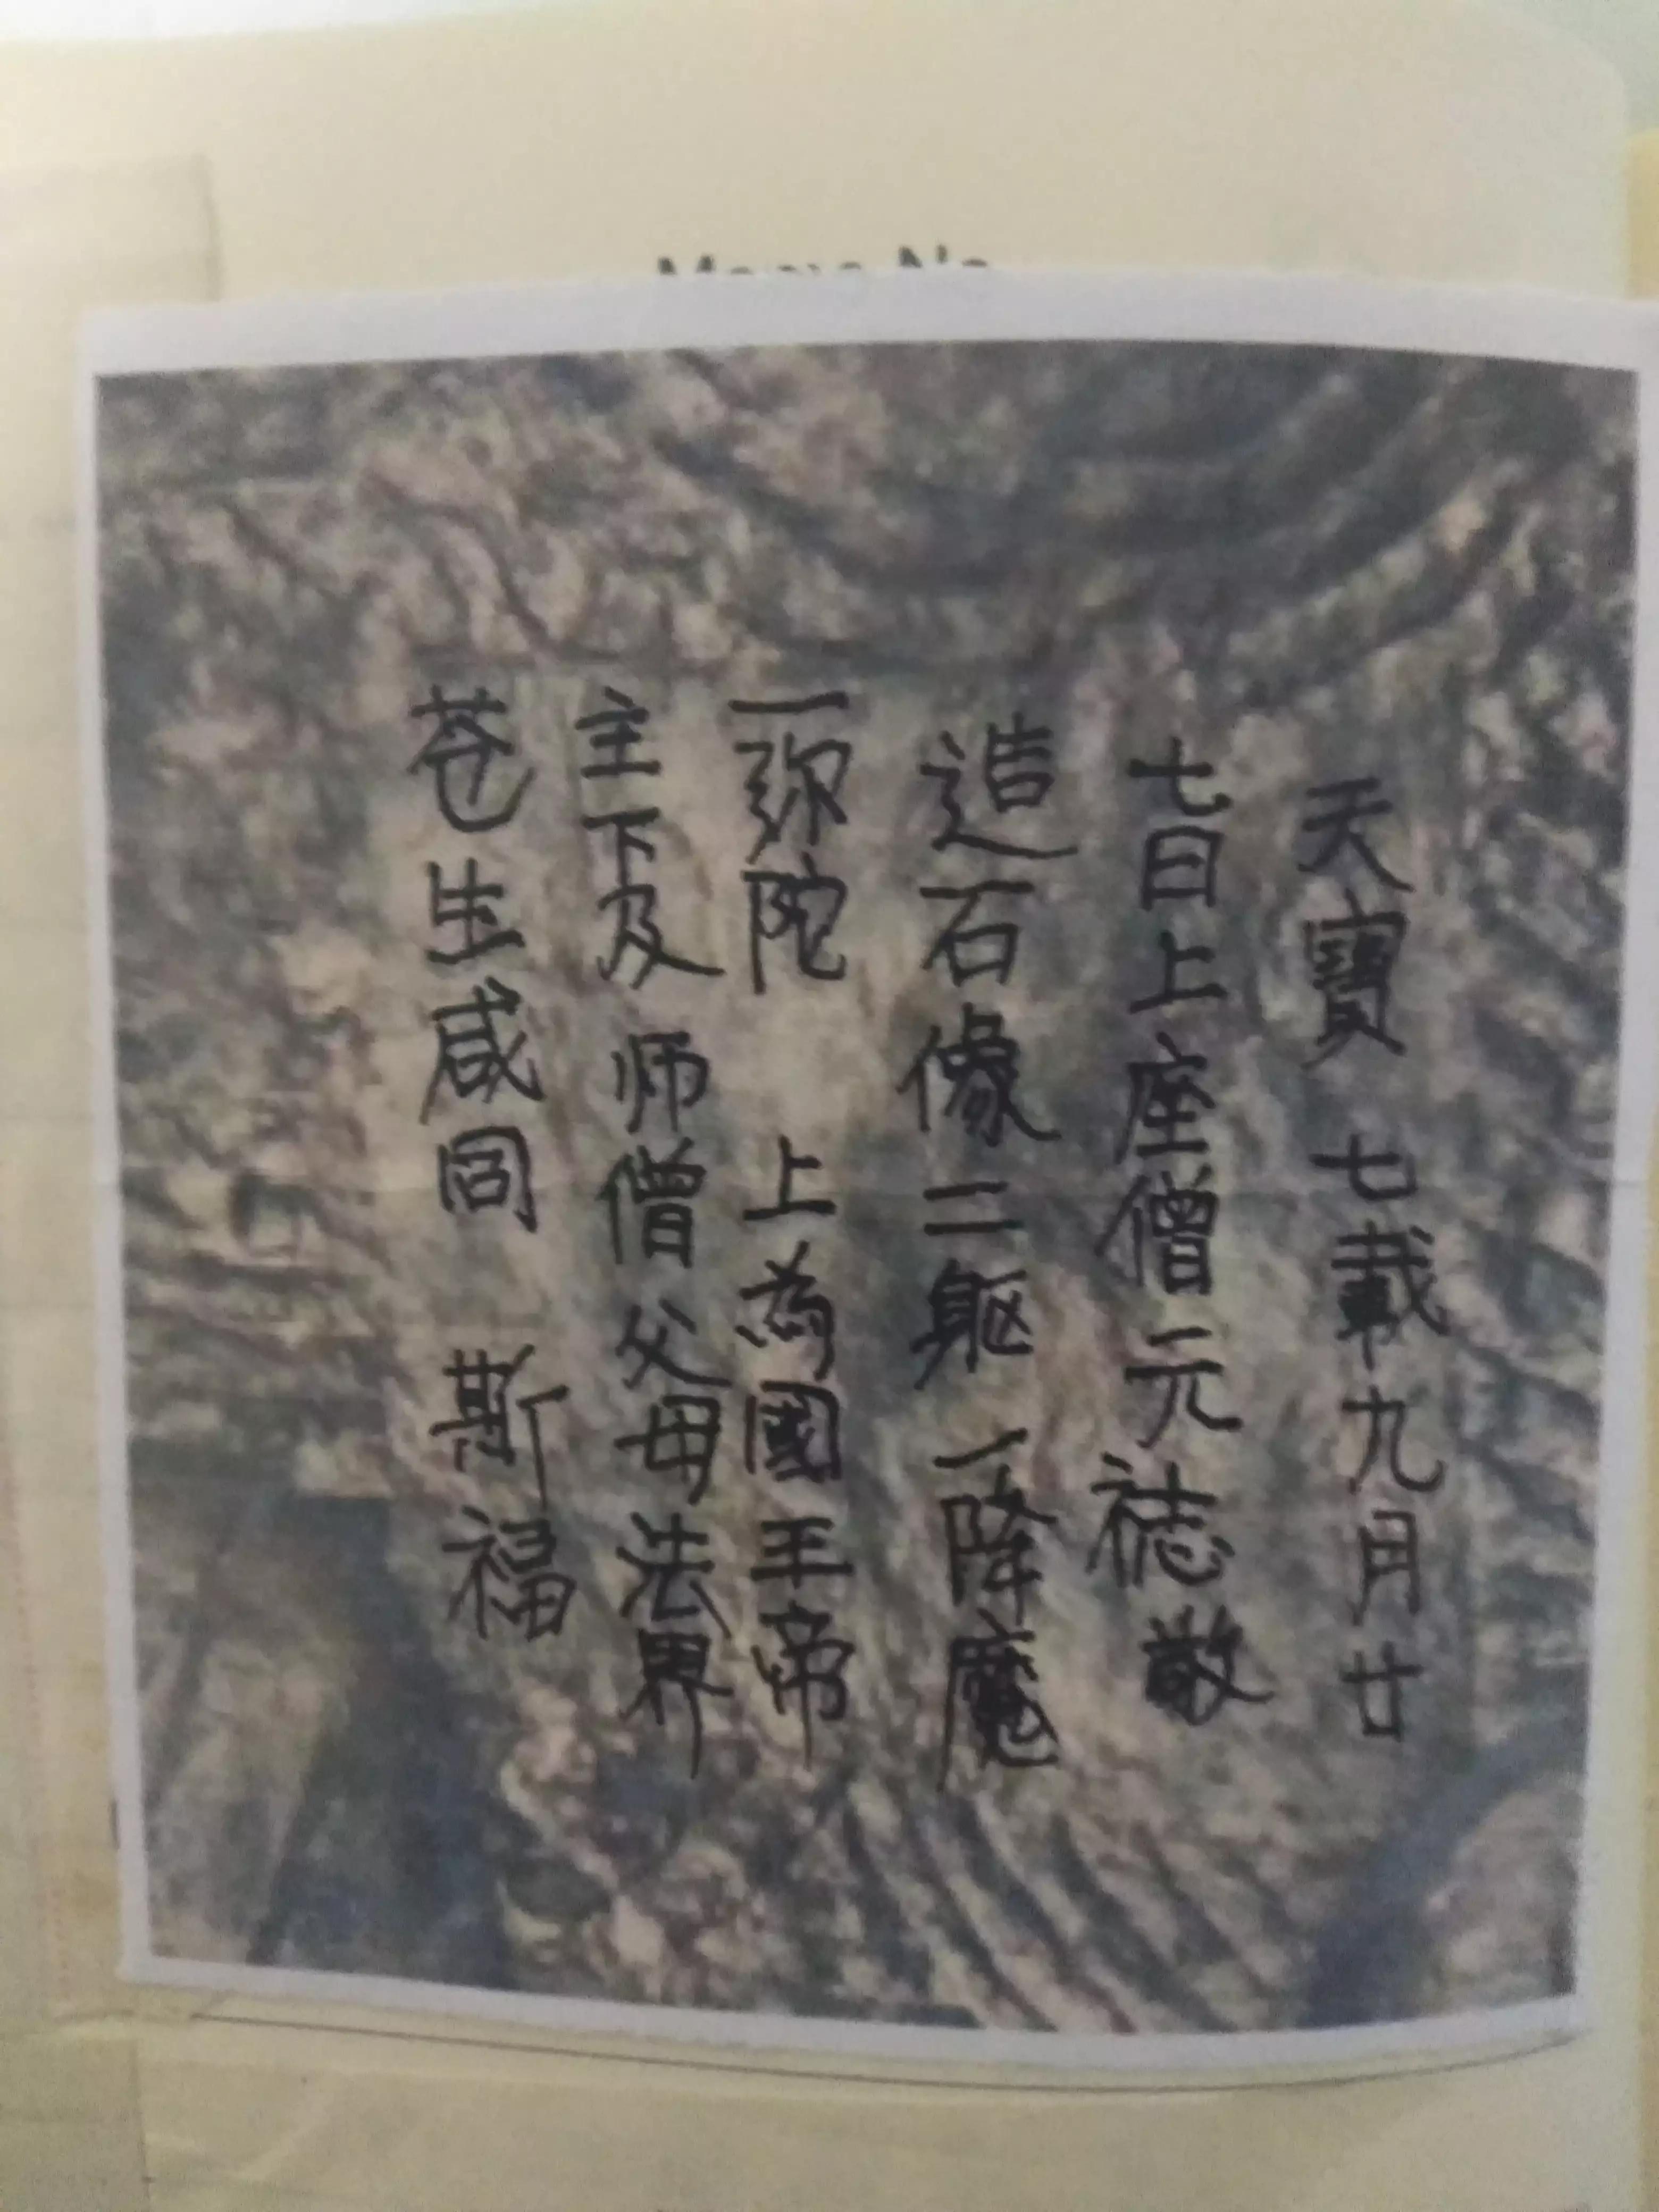 天寶七載九月廿
七日上座僧元祎敬
造石像二躯一降魔
一弥陀 上為國王帝
主下及师僧父母法界
苍生咸同 斯福